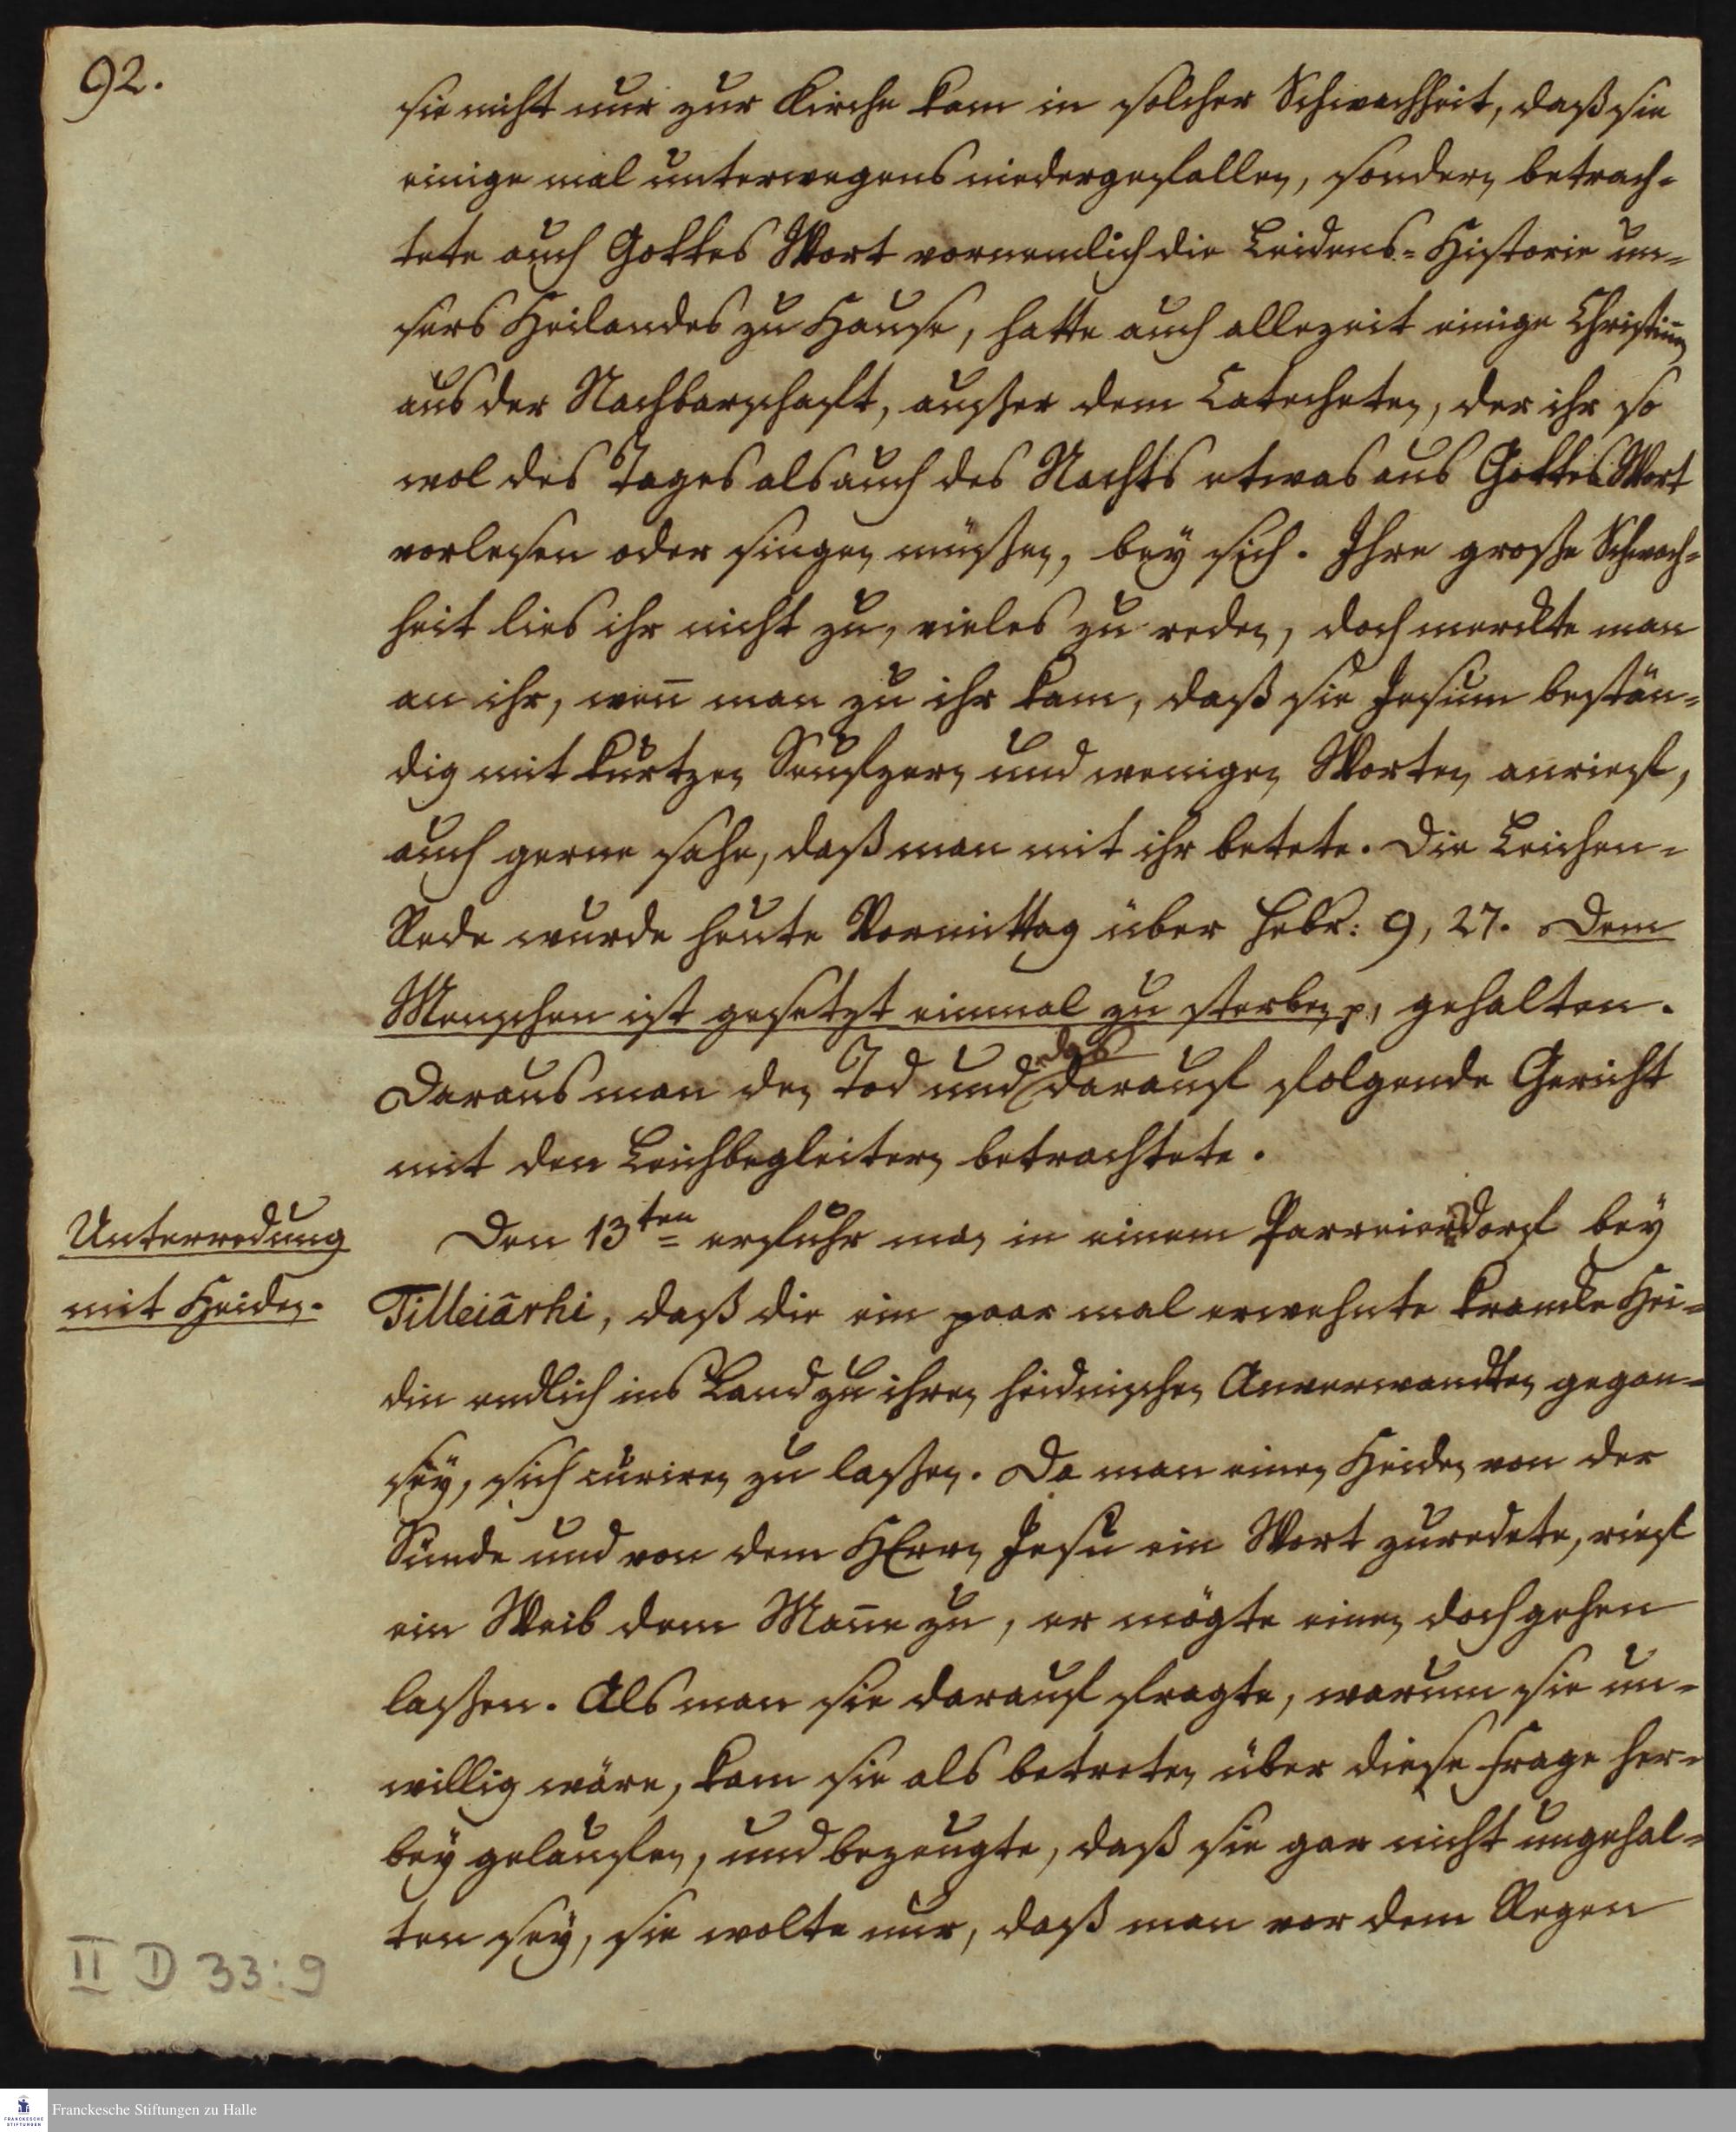 92.
sie nicht nur zur Kirche kam in solcher Schwachheit, daß sie
einige mal unterwegens niedergefallen, sondern betrach-
tete auch Gottes Wort vornemlich die Leidens-Historie un-
sers Heilandes zu Hause, hatte auch allezeit einige Christinen
aus der Nachbarschaft, ausser dem Catecheten, der ihr so
wol des Tages als auch des Nachts etwas aus Gottes Wort
vorlesen oder singen müßen, bey sich. Ihre große Schwach-
heit lies ihr nicht zu, vieles zu reden, doch merckte man
an ihr, wen̄ man zu ihr kam, daß sie Jesum bestän-
dig mit kurtzen Seufzern und wenigen Worten anrief,
auch gerne sahe, daß man mit ihr betete. Die Leichen-
Rede wurde heute Vormittag über Hebr: 9, 27. Dem
Menschen ist gesetzt einmal zu sterben p, gehalten.
Daraus man den Tod und das darauf folgende Gericht
mit den Leichbegleitern betrachtete.
Unterredung
mit Heiden.
Den 13ten erfuhr man in einem Parreierdorf bey
Tilleiārhi, daß die ein paar mal erwehnte krancke Hei-
din endlich ins Land zu ihren heidnischen Anverwandten gegan-
sey, sich curiren zu laßen. Da man einen Heiden von der
Sünde und von dem HErrn Jesu ein Wort zuredete, rief
ein Weib dem Man̄e zu, er mögte einen doch gehen
laßen. Als man sie darauf fragte, warum sie un-
willig wäre, kam sie als betreten über diese Frage her-
bey gelauffen, und bezeugte, daß sie gar nicht ungehal-
ten sey, sie wolte nur, daß man vor dem Regen
II D 33:9
Franckesche Stiftungen zu Halle
FRANCKESCHE
STIFTUNGEN